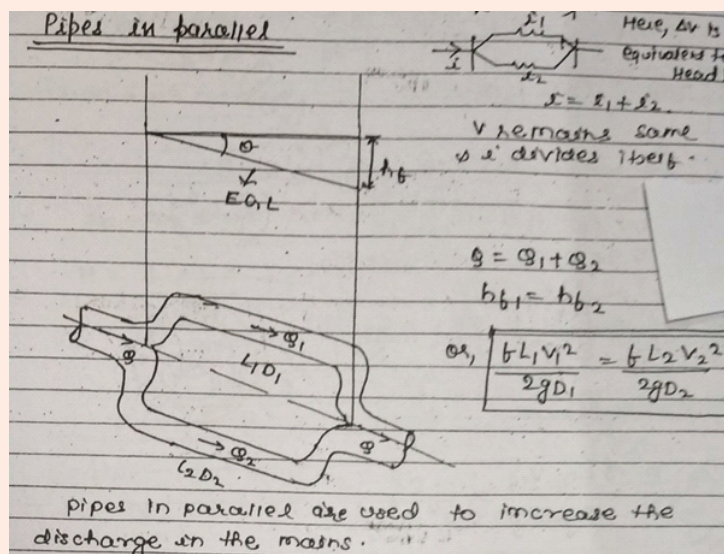 Pipes in parallel
i1
i
i2
Here, Δv is
equivalent to
Head
i = i1 + i2
V remains same
& i divides itself.
θ
hf
E.G.L
Q = Q1 + Q2
hf1 = hf2
or, fL1V1²/2gD1 = fL2V2²/2gD2
Q
→ Q1
L1D1
→ Q2
L2D2
Q
pipes in parallel are used to increase the
discharge in the mains.